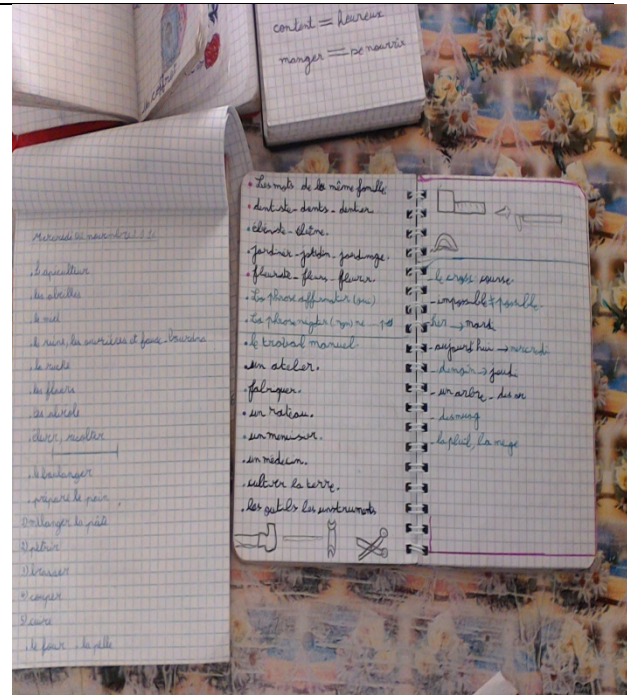 content = heureux
manger = se nourrir
Mercredi 02 novembre
. l'apiculteur
. les abeilles
. le miel
. la reine, les ouvrières et faux-bourdons
. la ruche
. les fleurs
. élever, récolter
. le boulanger
. prépare le pain
1) mélanger la pâte
2) pétrir
4) couper
5) cuire
. le four . la pelle
. Les mots de la même famille
. dentiste - dents - dentier
. jardinier - jardin - jardinage.
. fleuriste - fleurs - fleurir
. La phrase (oui)
. La phrase (non) ne - pas
. le trabal manuel.
. un atelier.
. fabriquer.
. un rateau.
. un menuisier.
. un médecin.
. cultiver la terre.
. les outils les instruments
- le cross course
- impossible ≠ possible
hier → mardi
- aujourd'hui → mercredi
- demain → jeudi
- un arbre - des ar
- la pluie, la neige